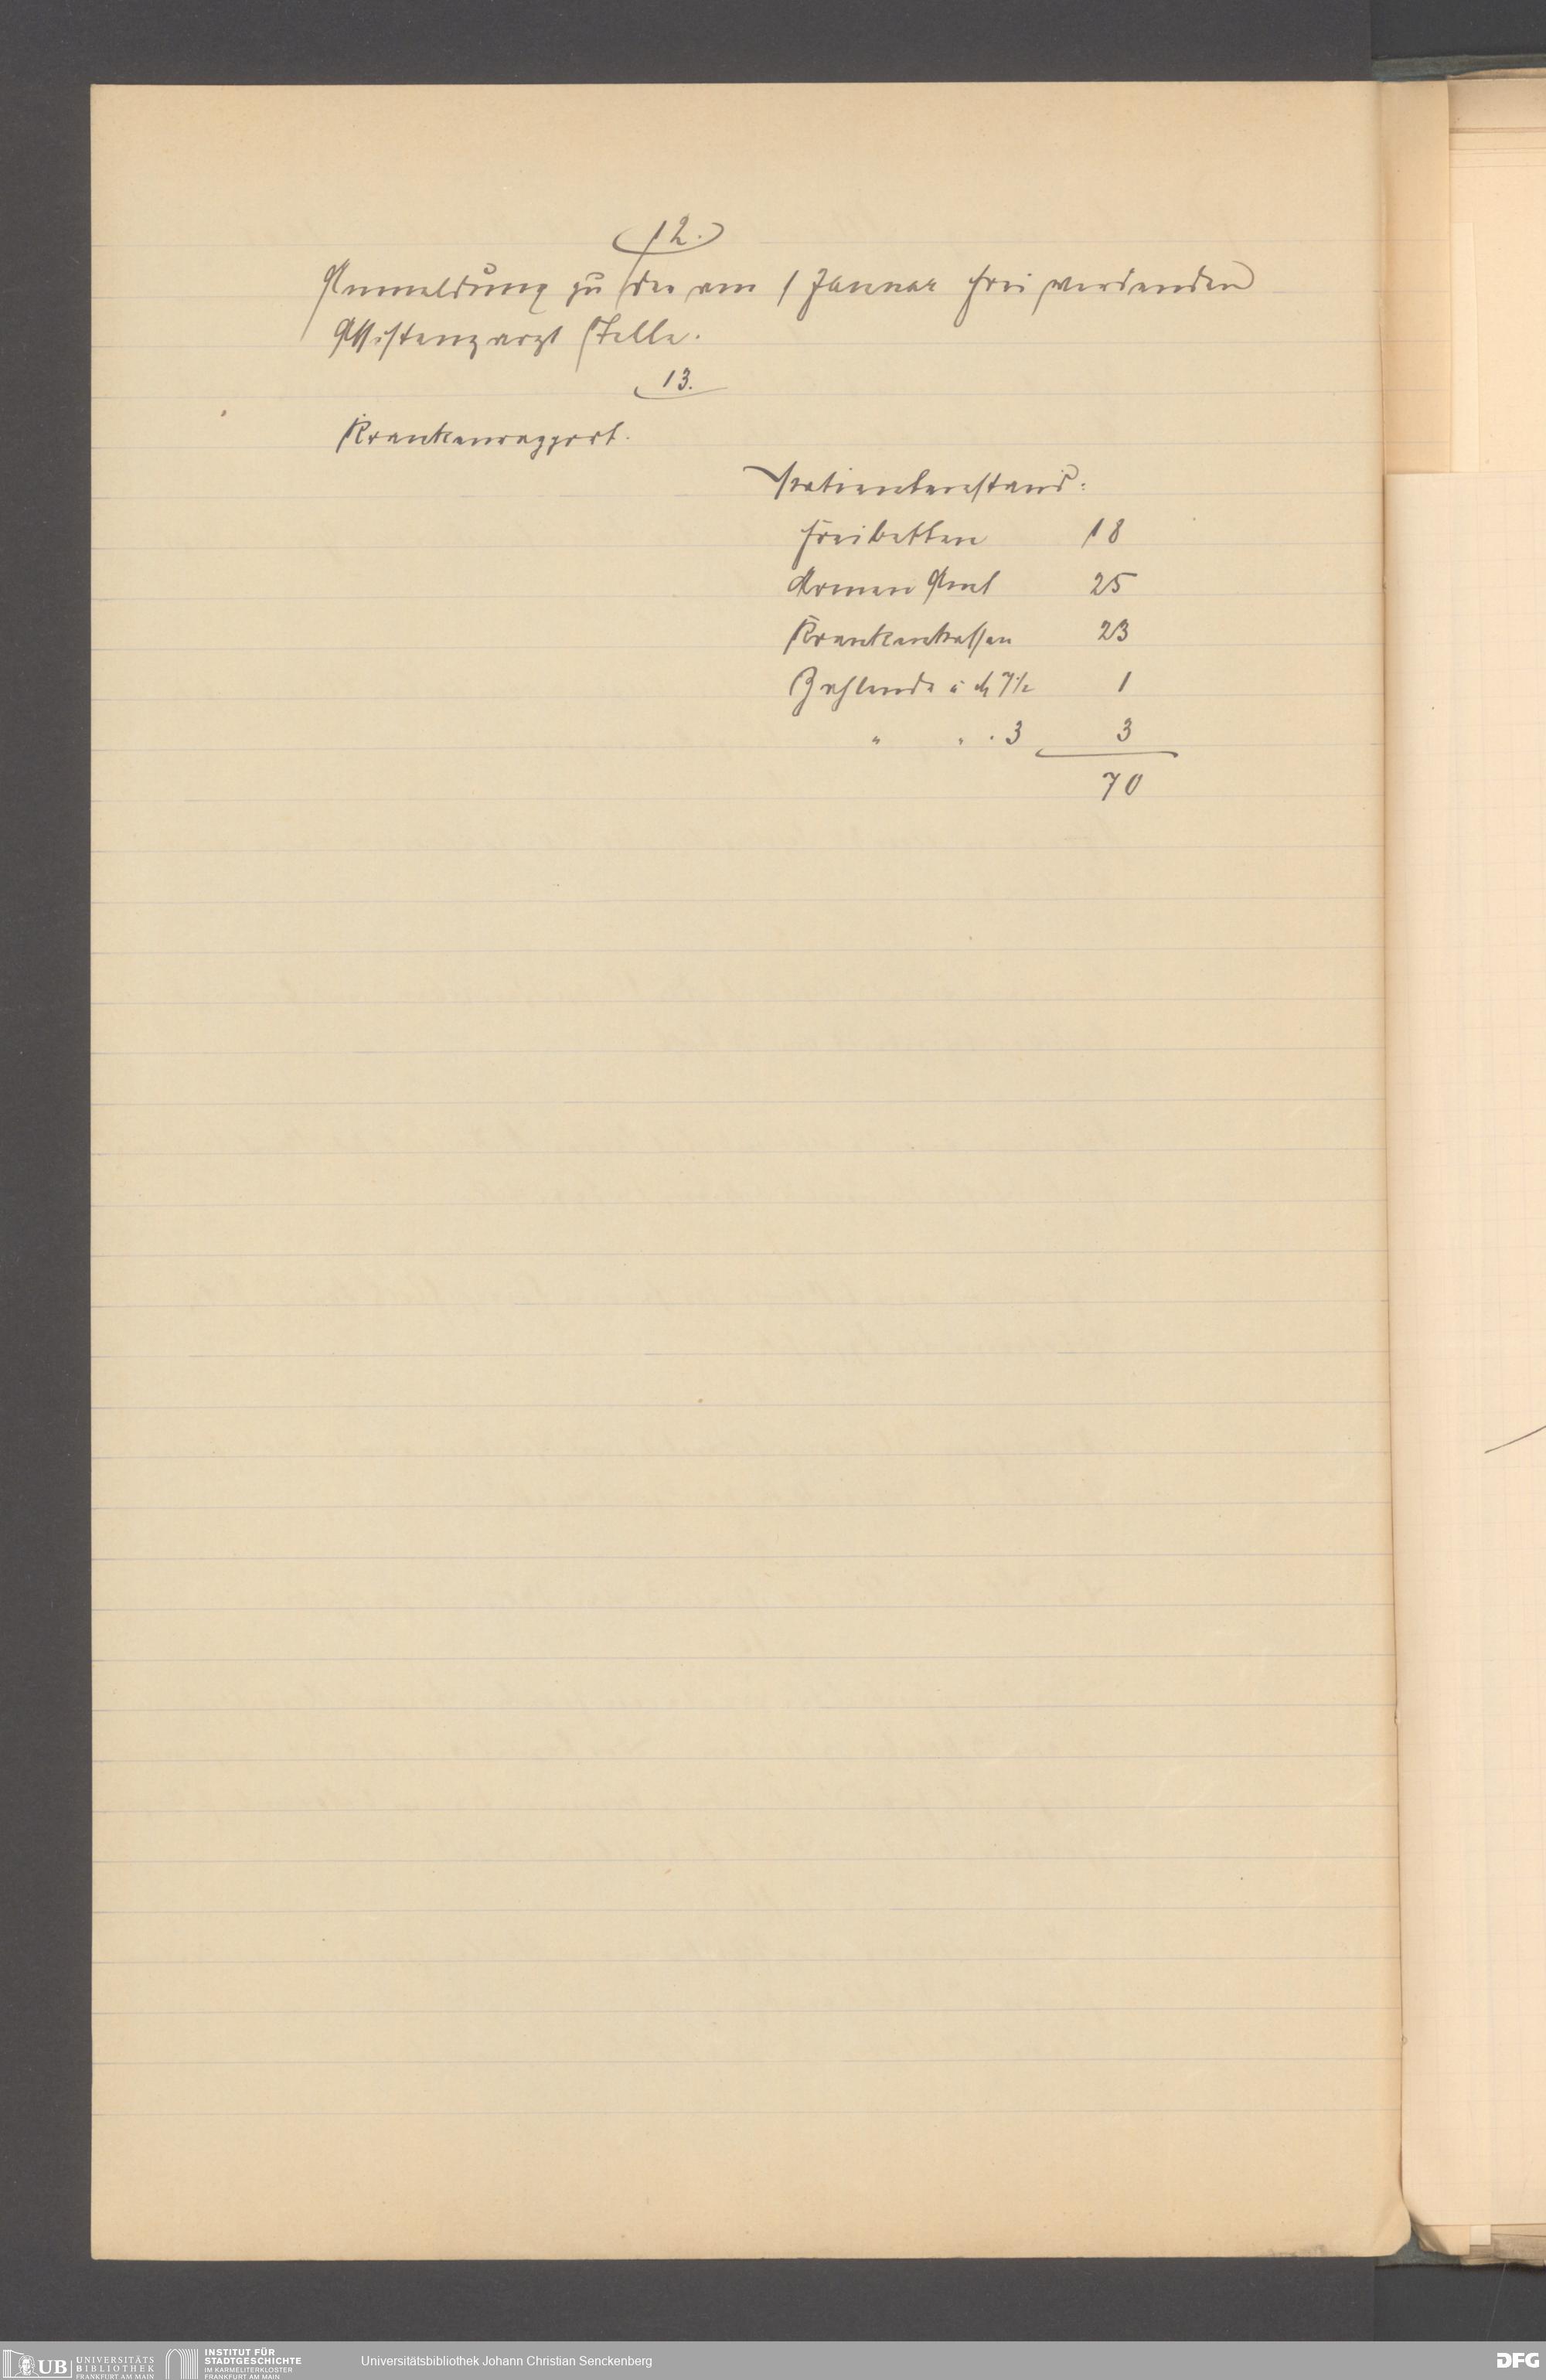 12.
Anmeldung zu der am 1 Januar frei werdenden
Assistenzarzt Stelle.
13.
Krankenrapport.
Patientenstand:
Freibetten 18
Armen Amt 25
Krankenkassen 23
Zahlende à M 7½ 1
" " " 3 3
70
UB UNIVERSITÄTS BIBLIOTHEK FRANKFURT AM MAIN
INSTITUT FÜR STADTGESCHICHTE IM KARMELITERKLOSTER FRANKFURT AM MAIN
Universitätsbibliothek Johann Christian Senckenberg
DFG